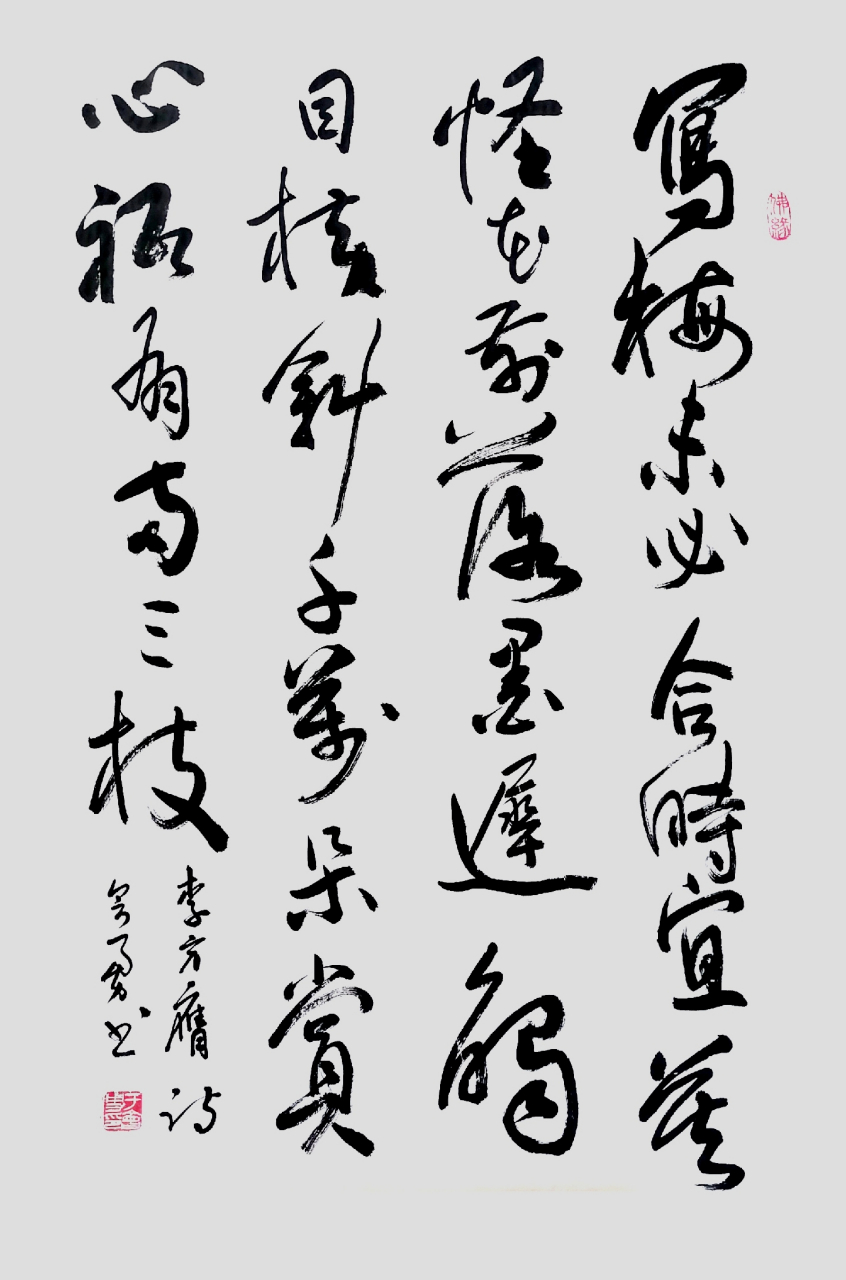 佛緣
寫梅未必合時宜莫
怪花前落墨遲觸
目橫斜千萬朵賞
心祗有兩三枝
李方膺詩
勇书